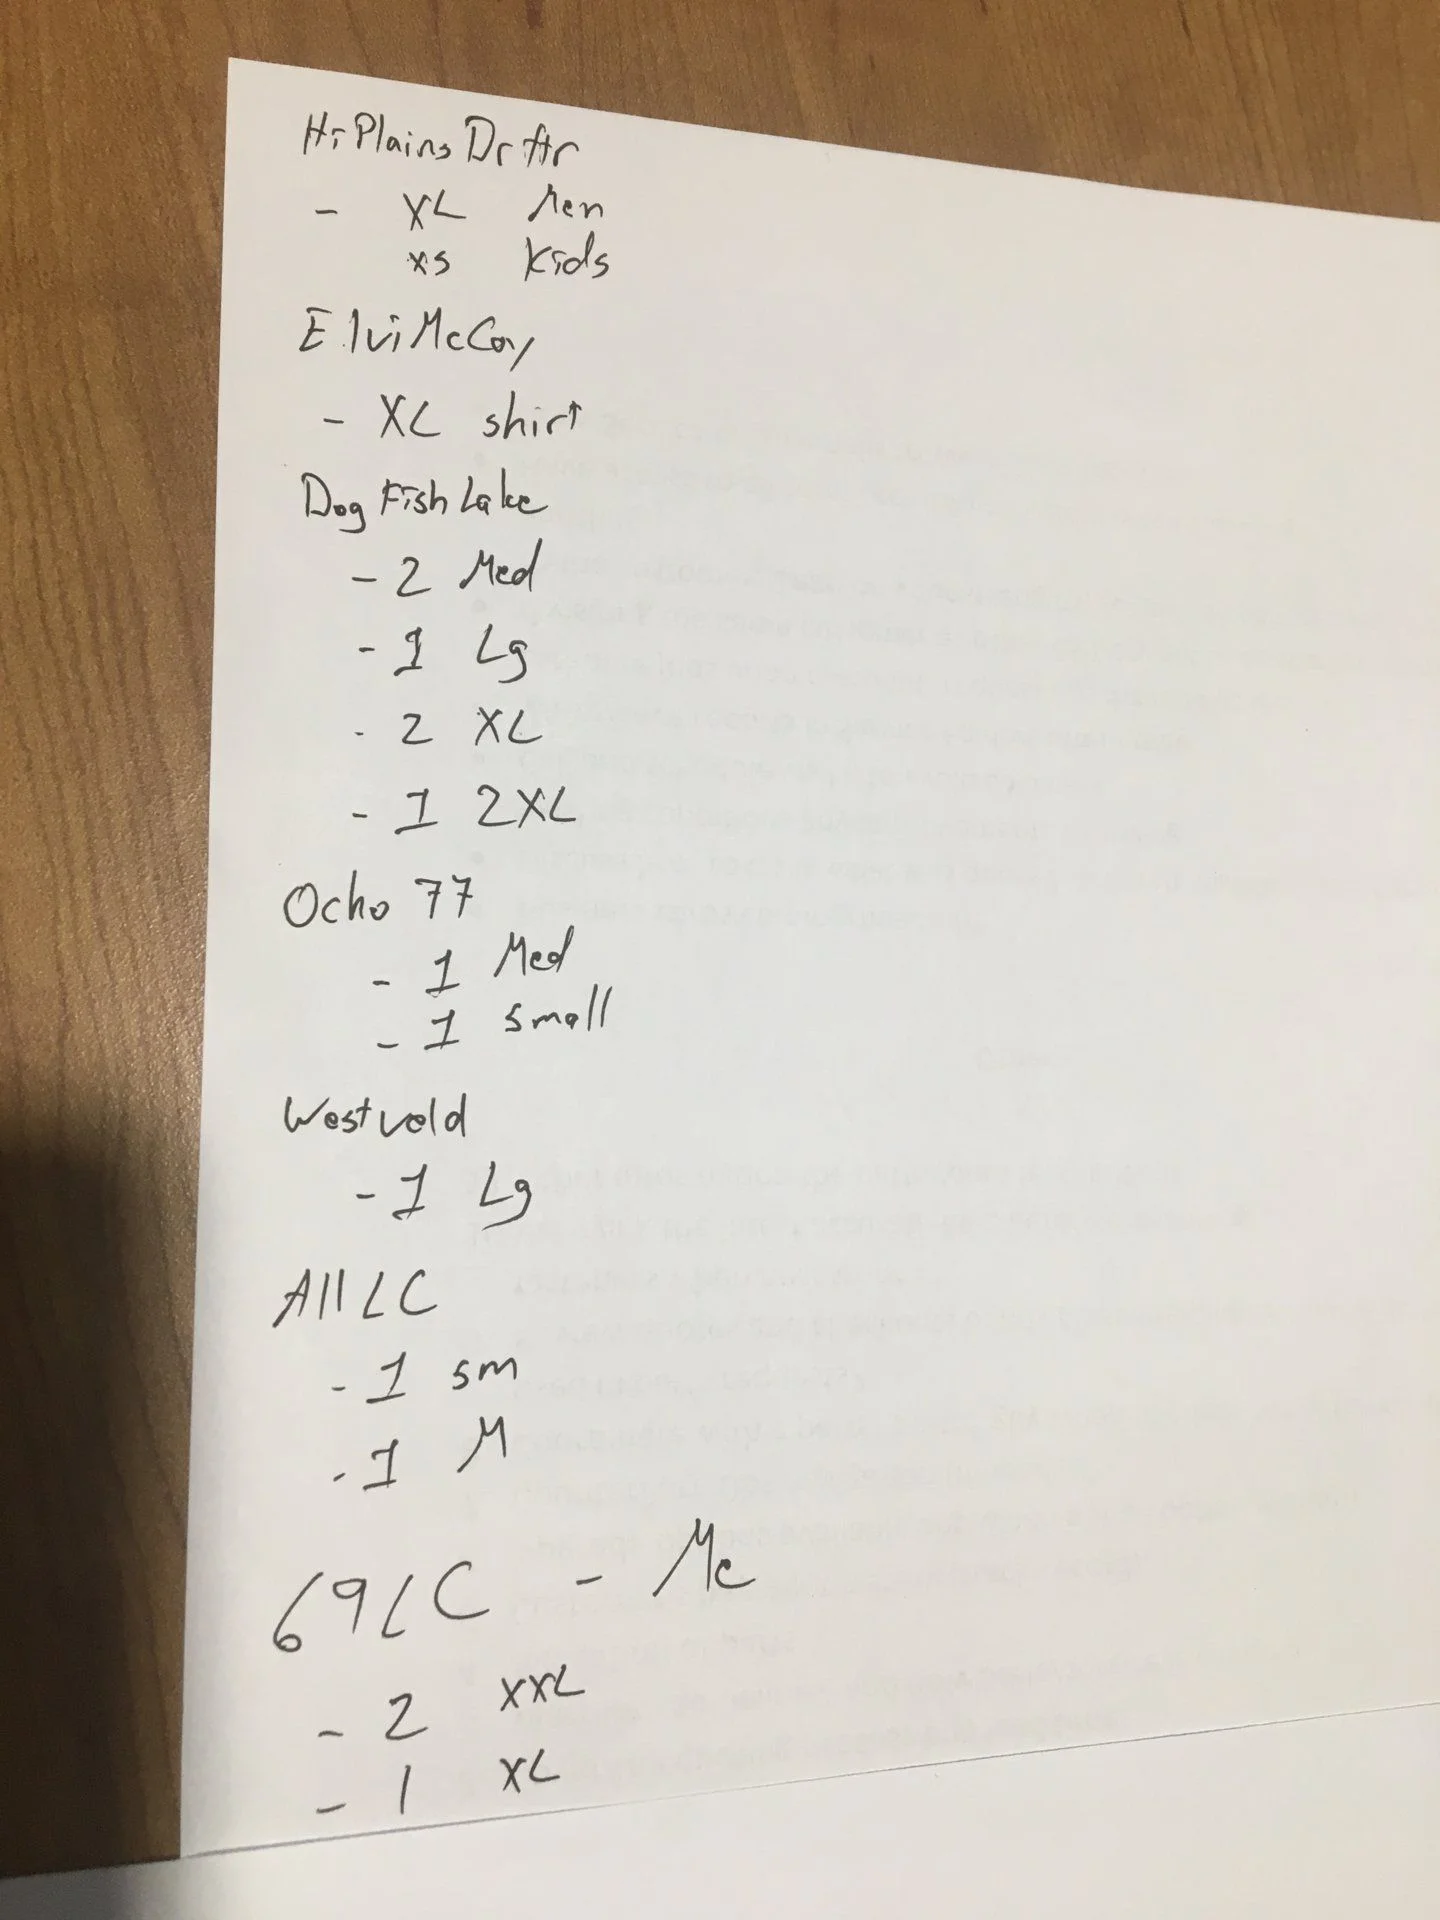 Hi Plains Drftr
- XL Men
xs Kids
ElviMcCoy
- XL shirt
Dog Fish Lake
- 2 Med
- 1 Lg
- 2 XL
- 1 2XL
Ocho 77
- 1 Med
- 1 small
Westveld
- 1 Lg
All LC
- 1 sm
- 1 M
69LC - Me
- 2 XXL
- 1 XL